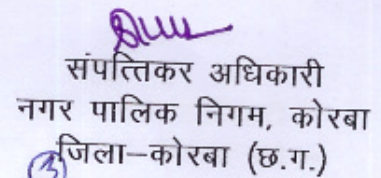 संपत्तिकर अधिकारी
नगर पालिक निगम, कोरबा
जिला–कोरबा (छ.ग.)
3